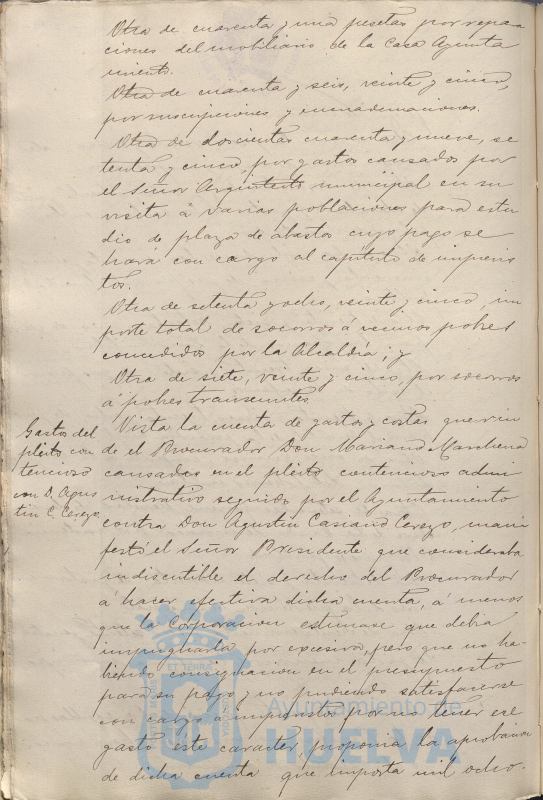 Otra de cuarenta y una pesetas por repara
ciones del mobiliario de la Casa Ayunta
miento.
Otra de cuarenta y seis, veinte y cinco,
por suscripciones y encuadernaciones.
Otra de doscientas cuarenta y nueve, se
tenta y cinco, por gastos causados por
el Señor Arquitecto municipal en su
visita á varias poblaciones para estu
dio de plaza de abastos cuyo pago se
hará con cargo al capítulo de imprevis
tos.
Otra de setenta y ocho, veinte y cinco, im
porte total de socorros á vecinos pobres
concedidos por la Alcaldía; y
Otra de siete, veinte y cinco, por socorros
á pobres transeuntes
Gastos del
pleito con
tencioso
con D. Agus
tin C. Cerezo
Vista la cuenta de gastos y costas que rin
de el Procurador Don Mariano Marchena
causadas en el pleito contencioso admi
nistrativo seguido por el Ayuntamiento
contra Don Agustin Casiano Cerezo, mani
festó el Señor Presidente que consideraba
indiscutible el derecho del Procurador
á hacer efectiva dicha cuenta, á menos
que la Corporacion estimase que debia
impugnarla por excesiva, pero que no ha-
biendo consignacion en el presupuesto
para su pago y no pudiendo satisfacerse
con cargo á imprevistos por no tener ese
gasto este caracter, proponia la aprobacion
de dicha cuenta que importa mil ocho-
Ayuntamiento de
HUELVA